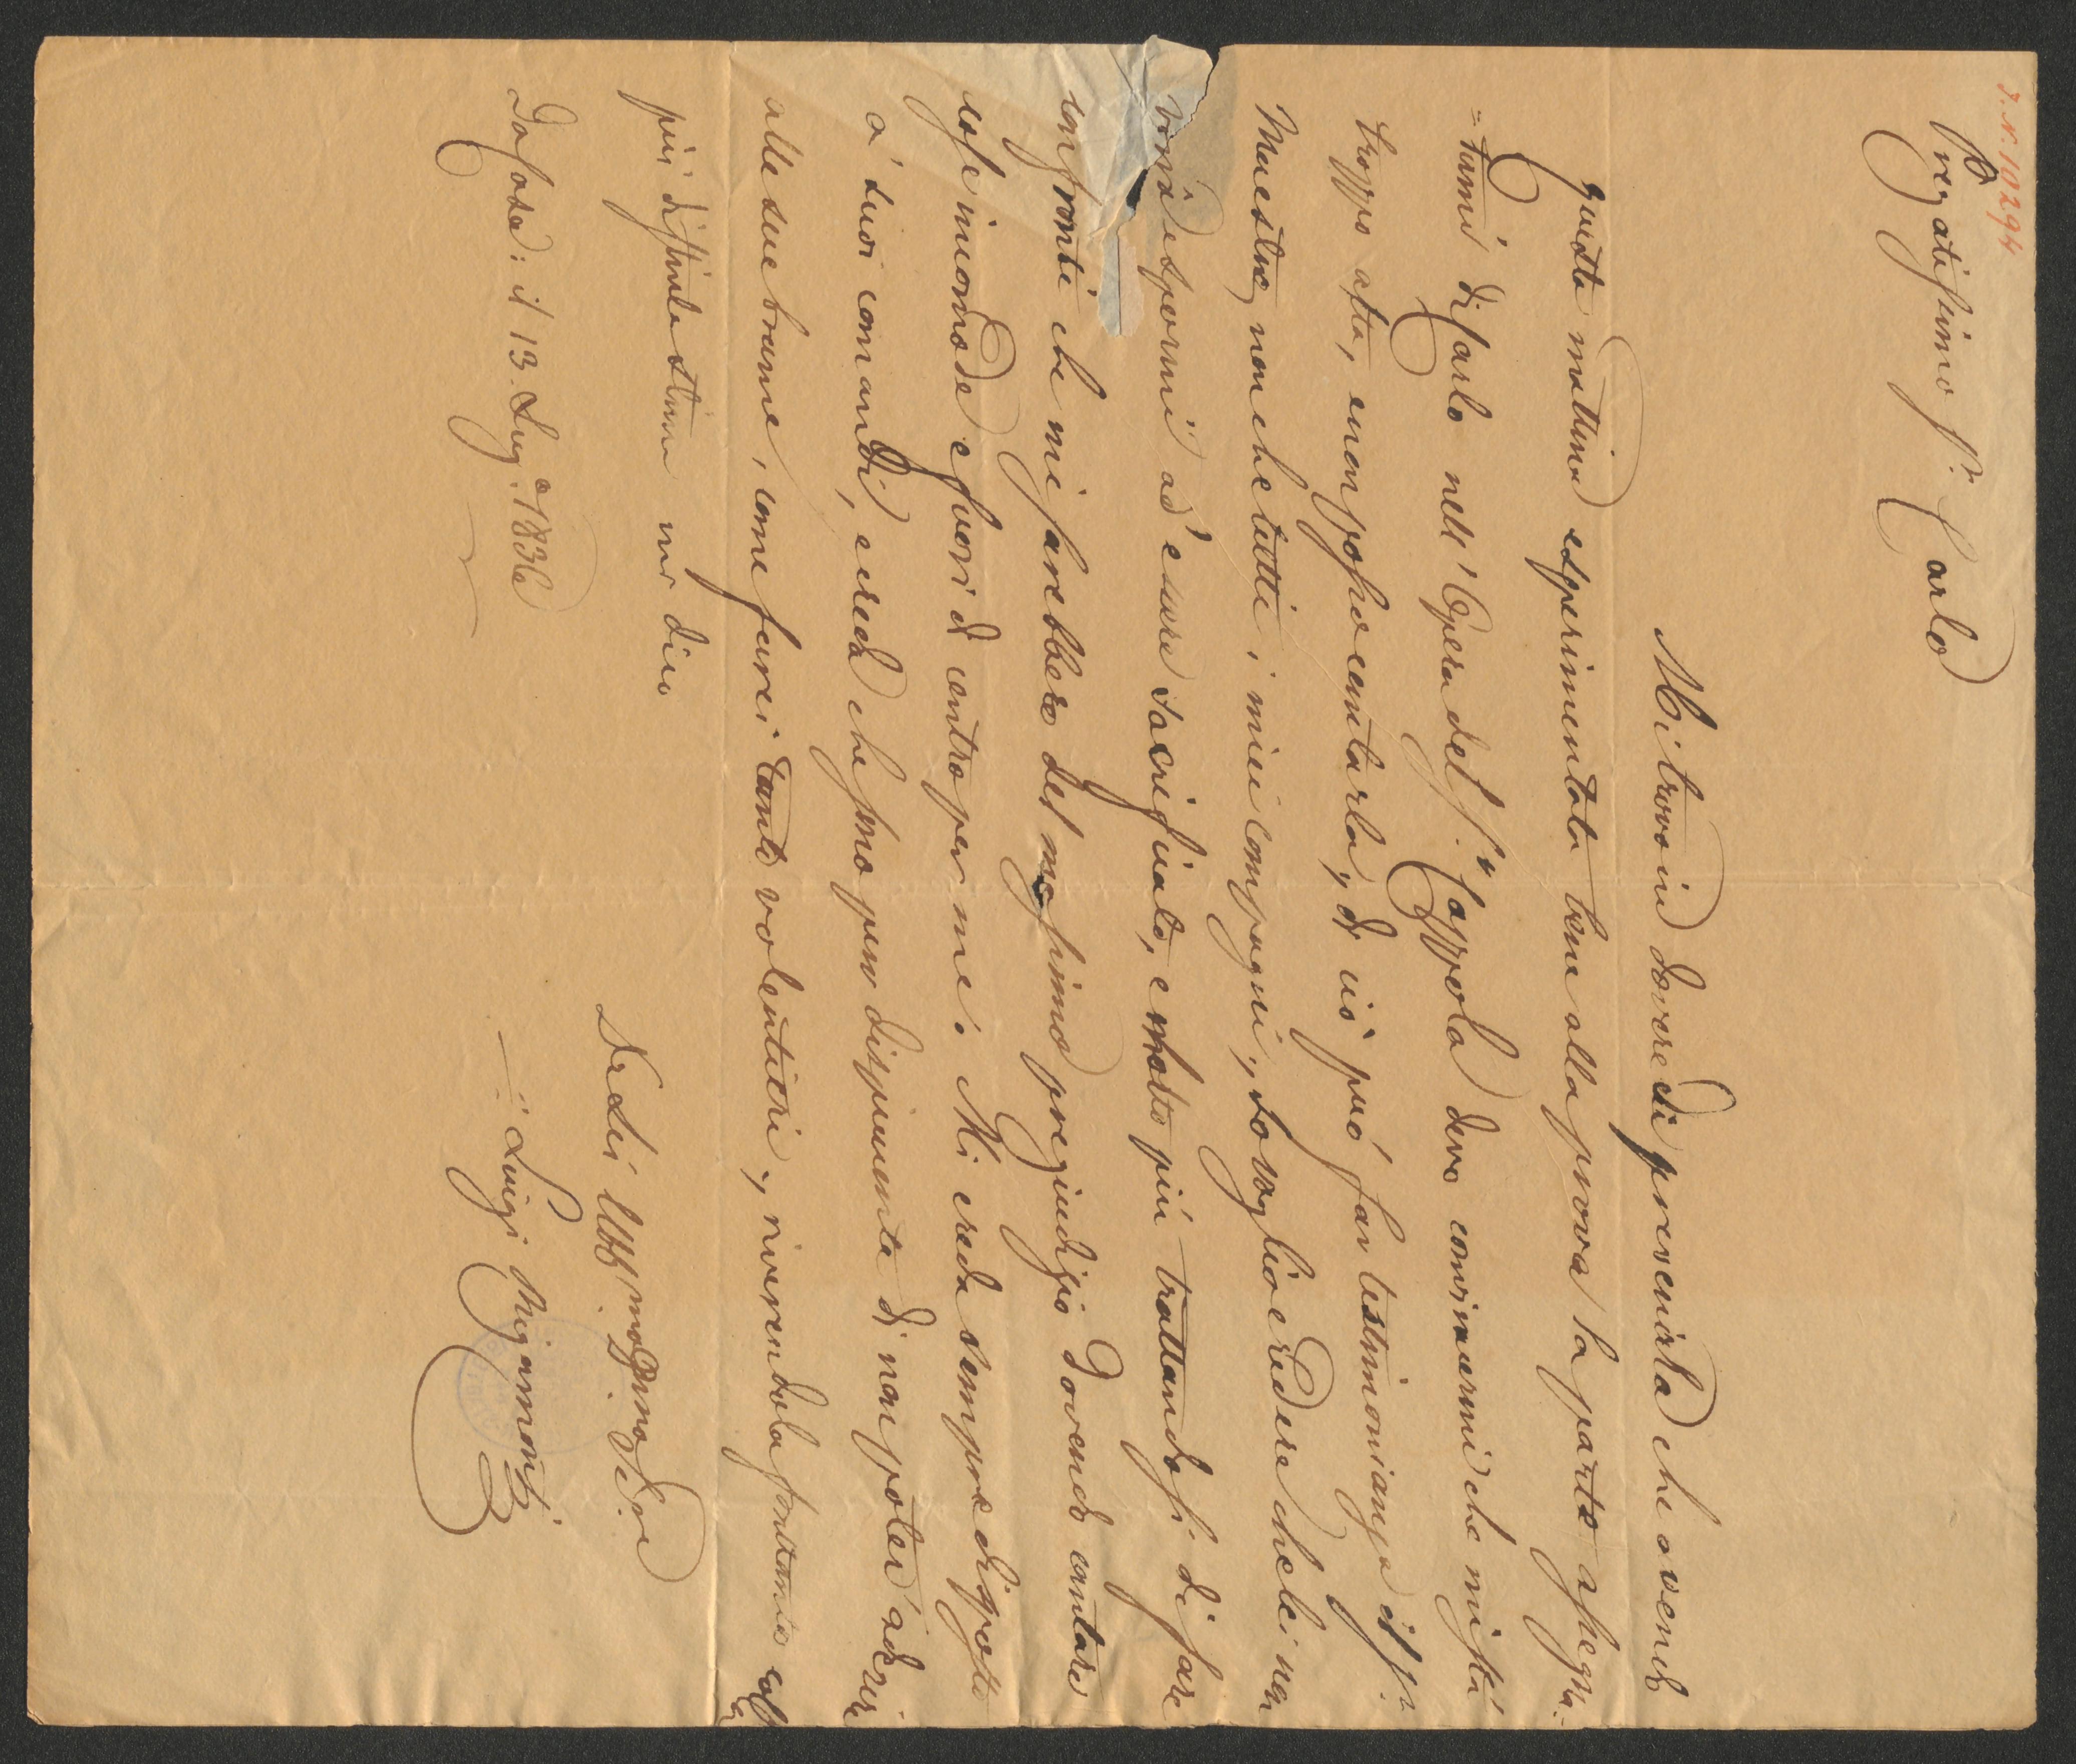 J. N. 10294
Pregatissimo Sr. Carlo
Mi trovo in dovere di prevenirla che avendo
questa mattina esperimentata bene alla prova la parte assegna-
=tami di Carlo nell' Opera del Sr. Coppola devo convincermi che mi sta
troppo alta, e non posso cantarla, di ciò può far testimonianza il Sr.
Maestro, non che tutti i miei compagni, Lo voglio credere che lei non
vorrà espormi ad essere sacrificato, e molto più trattandosi di fare
confronti che mi sarebbero del massimo pregiudizio dovendo cantare
cose incomode e fuori di centro per me. Mi creda sempre disposto
a' suoi comandi, e creda che sono pur dispiacente di non poter aderire
alle sue brame, come farei tanto volentieri, riverendola frattanto colla
più distinta stima mi dico
Di Lei Obbmo Servo
Da Casa: il 13. Lugo. 1836
Luigi Rigamonti